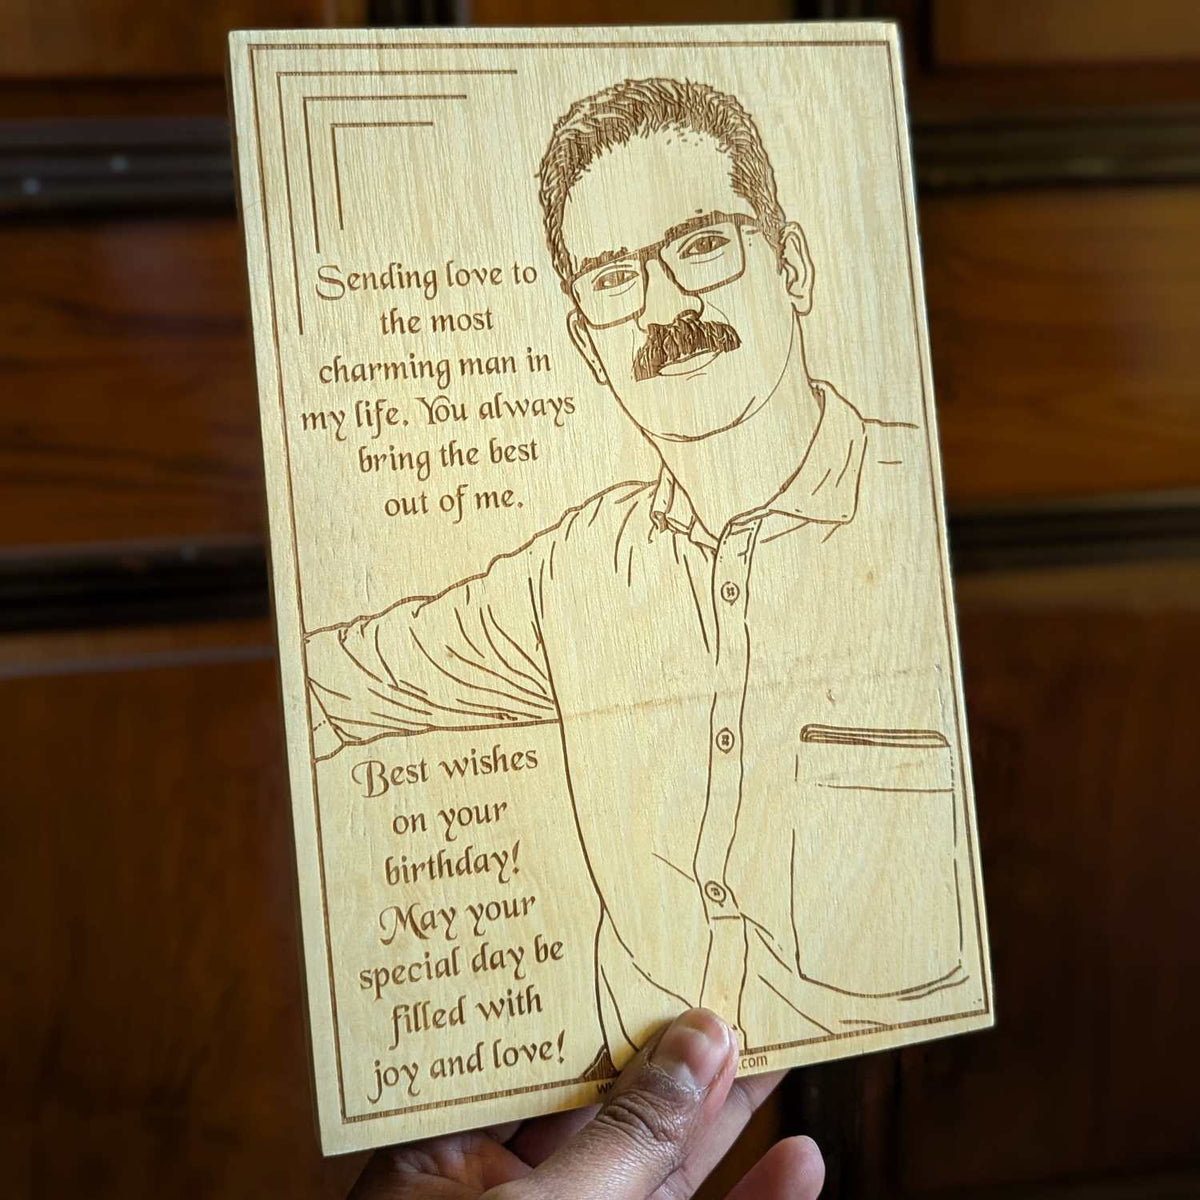 Sending love to
the most
charming man in
my life. You always
bring the best
out of me.
Best wishes
on your
birthday!
May your
special day be
filled with
joy and love!
.com